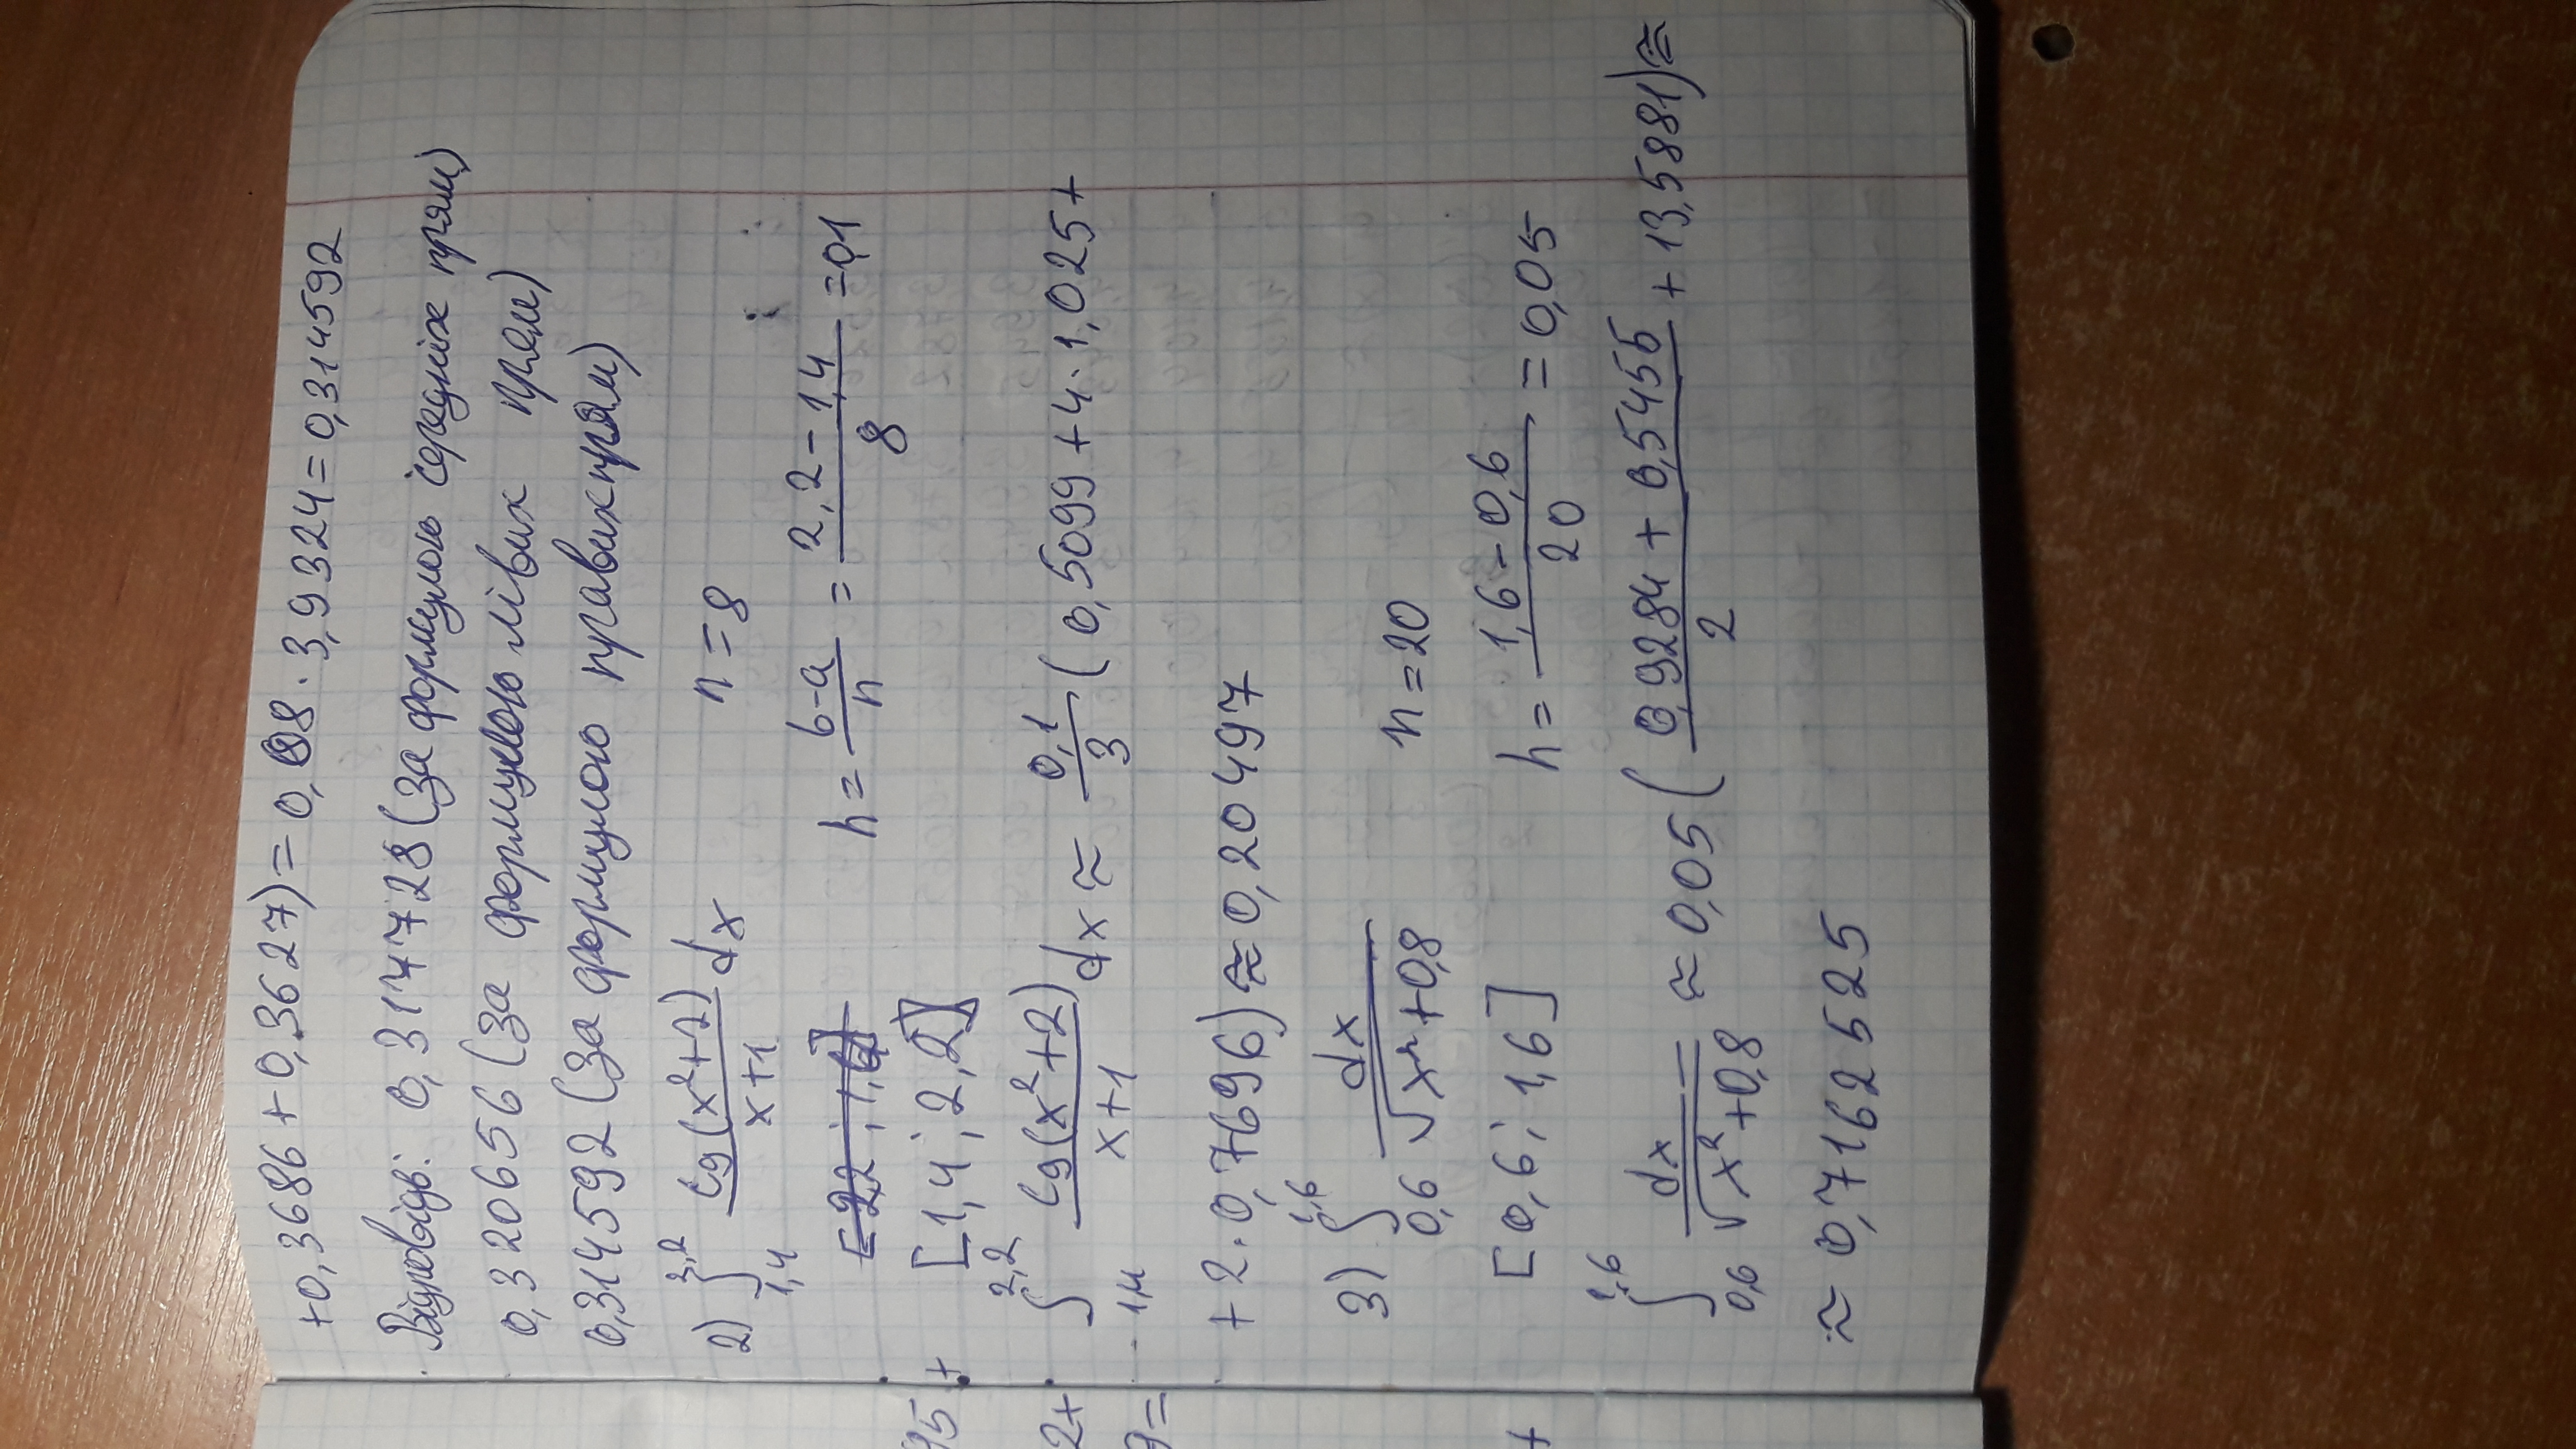 +0,3686+0,3627)=0,08·3,9324=0,314592
Відповідь: 0,317728(за формулою середніх прям)
0,320656(за формулою лівих прям)
0,314592(за формулою правих прям)
2) ∫ 2,2 1,4 lg(x²+2)/(x+1) dx n=8
[2,2;1,6]
h=(b-a)/n=(2,2-1,4)/8=0,1
[1,4;2,2]
∫ 2,2 1,4 lg(x²+2)/(x+1) dx≈0,1/3(0,5099+4·1,025+
+2·0,7696)≈0,20497
3) ∫ 1,6 0,6 dx/√(x²+0,8) n=20
[0,6;1,6] h=(1,6-0,6)/20=0,05
∫ 1,6 0,6 dx/√(x²+0,8)≈0,05((0,9284+0,5455)/2+13,5881)≈
≈0,7162525
95+
2+
9=
+